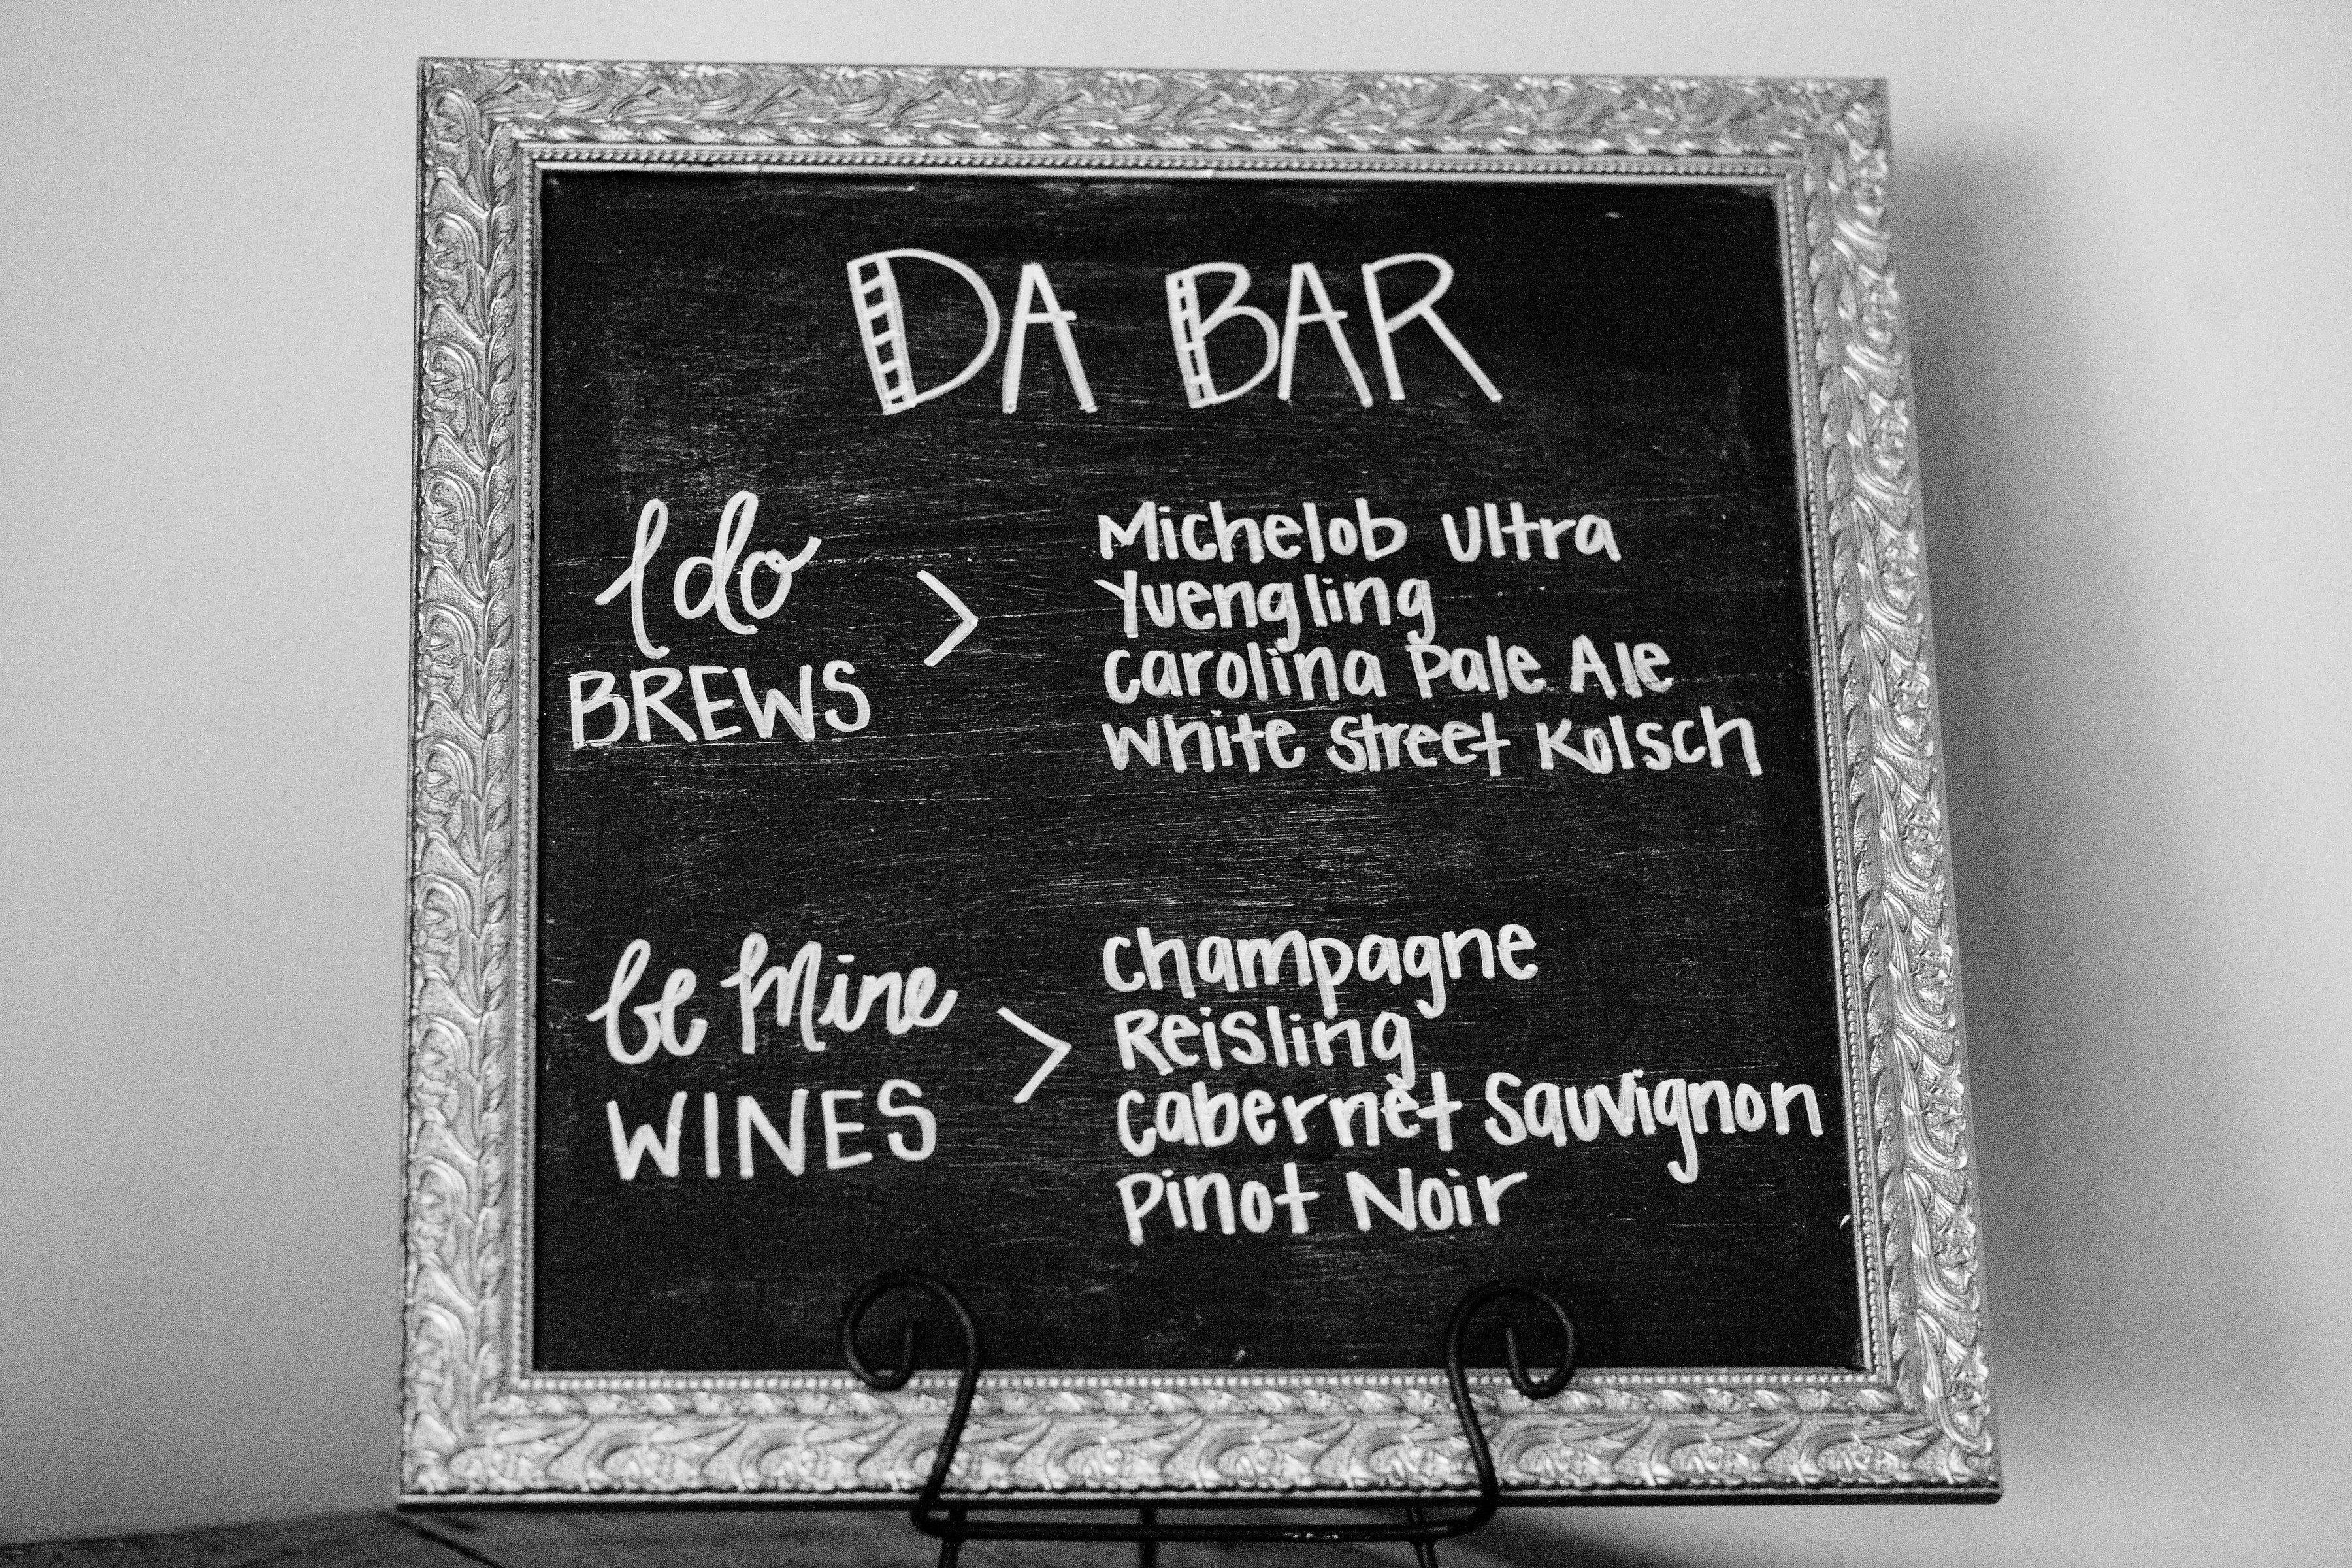 DA BAR
I do
BREWS
>
Michelob Ultra
Yuengling
Carolina Pale Ale
White Street Kolsch
be mine
WINES
>
Champagne
Reisling
Cabernet Sauvignon
Pinot Noir